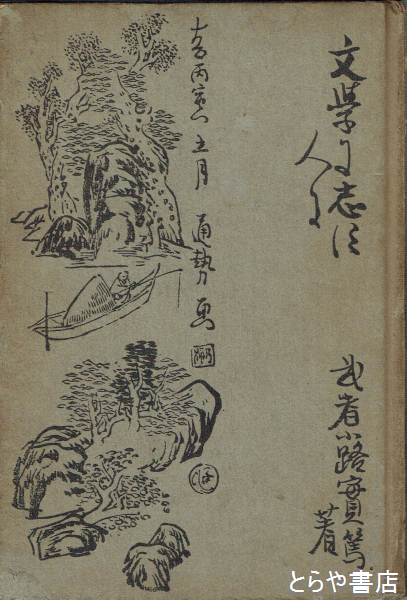 文學に志す
人に
武者小路實篤
著
大正丙寅五月 通勢画
とらや書店